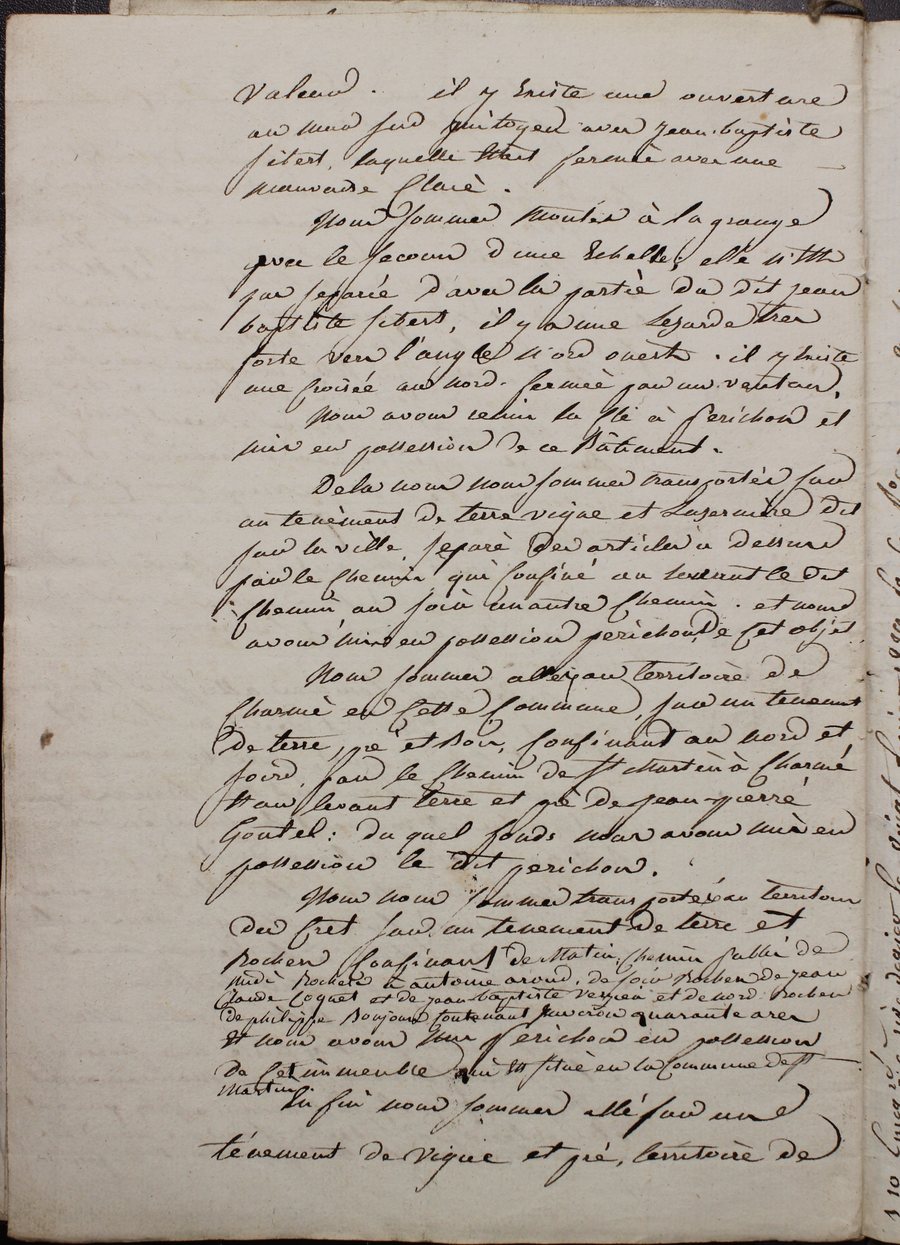 valeur. il y Existe une ouverture
au mur sud mitoyen avec jean-baptiste
sibert, laquelle Est fermée avec une
mauvaise Claie.
Nous sommes Montés à la grange
avec le secours d'une Echelle; elle n'Est
pas separée d'avec la partie du dit jean
baptiste sibert, il y a une Lezarde très
forte vers l'angle Nord ouest. il y Existe
une Croisée au nord. fermée par un ventau,
Nous avons remis la Clé à perichon et
mis en possession de ce Bâtiment.
De la nous nous sommes transportés sur
un tenèment de terre vigne et Luzernière dit
sur la ville, separé des articles ci dessus
par le Chemin qui Confine au levant le dit
Chemin au soir un autre Chemin. et nous
avons mis en possession perichon, de Cet objet
Nous sommes allés au territoire de
Charmé en Cette Commune, sur un tenement
de terre, pré et Bois, Confinant au nord et
soir, par le Chemin de St Martin à Charmé
Et au levant terre et pré de jean-pierre
Goutel: du quel fonds nous avons mis en
possession le dit perichon.
Nous nous sommes transportés au territoire
du Cret sur un tenement de terre et
Rochers Confinant de Matin Chemin public de
midi Rochers à antoine, de soir Rochers de jean
Claude Coquet et de jean baptiste et de nord Rochers
de philippe Bonjour Contenant Environ quarante ares
Et nous avons mis perichon en possession
de Cet immeuble qui Est situé en la Commune de St
Martin.
En fin nous sommes allé sur une
ténement de vigne et pré, territoire de